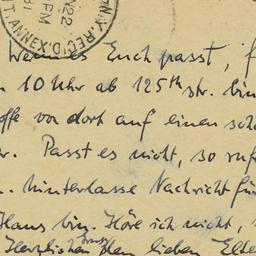 N.Y. REC'D.
T. ANNEX.D.
N22
PM
31
Wenn es Euch passt, f
10 Uhr ab 125th str. bin
offe von dort auf einen sch
r. Passt es nicht, so ruf
n. hinterlasse Nachricht für
Haus bin. Höre ich nicht,
Herzlichen den lieben Elte